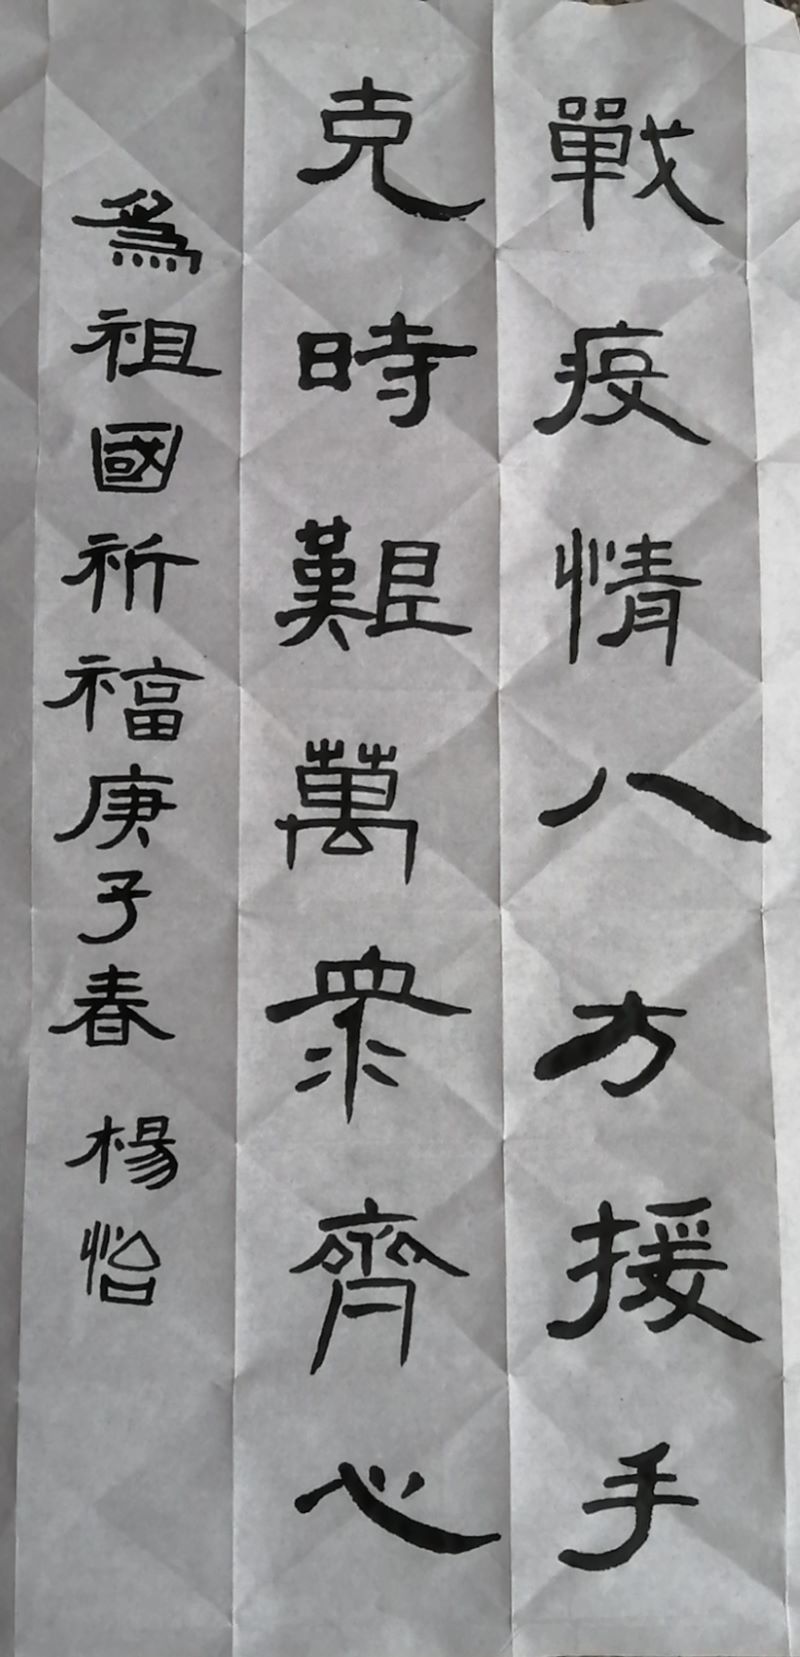 戰疫情八方援手
克時艱萬衆齊心
爲祖國祈福庚子春 楊怡